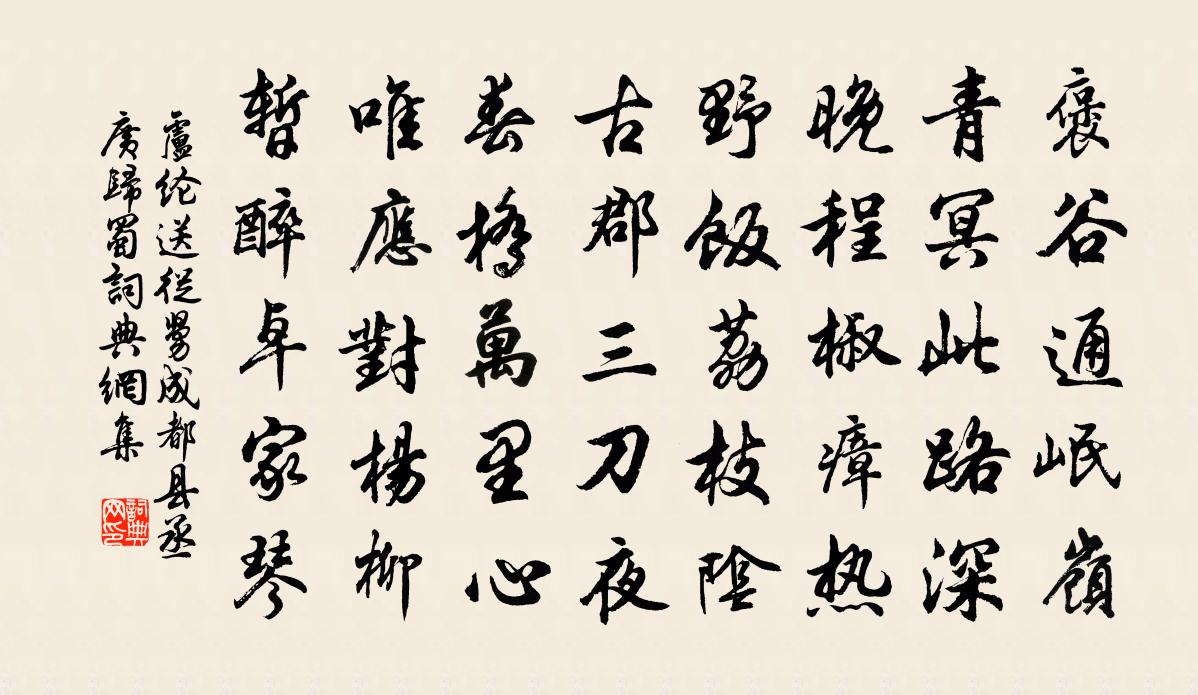 褒谷通岷嶺
青冥此路深
晚程椒瘴热
野飯荔枝陰
古郡三刀夜
春橋萬里心
唯應對楊柳
暫醉卓家琴
盧纶送從舅成都县丞
廣歸蜀詞典網集
詞典
网印